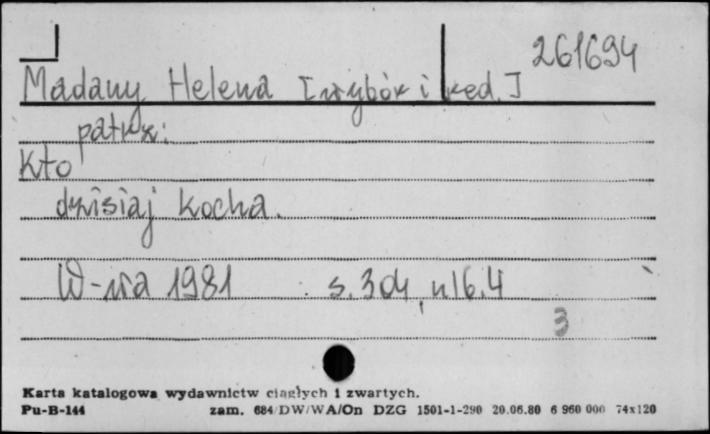 261694
Madany Helena [wybór i red.]
patrz:
Kto
dzisiaj kocha.
W-wa 1981 s. 304, nlb. 4
3
Karta katalogowa wydawnictw ciągłych i zwartych.
Pu-B-144 zam. 684/DW/WA/On DZG 1501-1-290 20.06.80 6 960 000 74x120